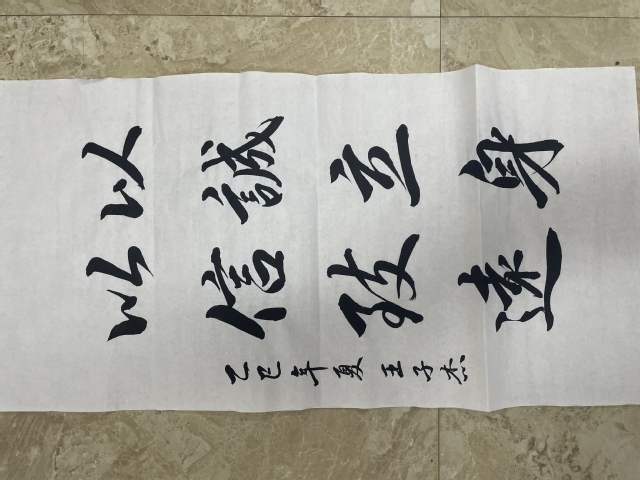 以誠立身
以信致遠
乙巳年夏 王子杰